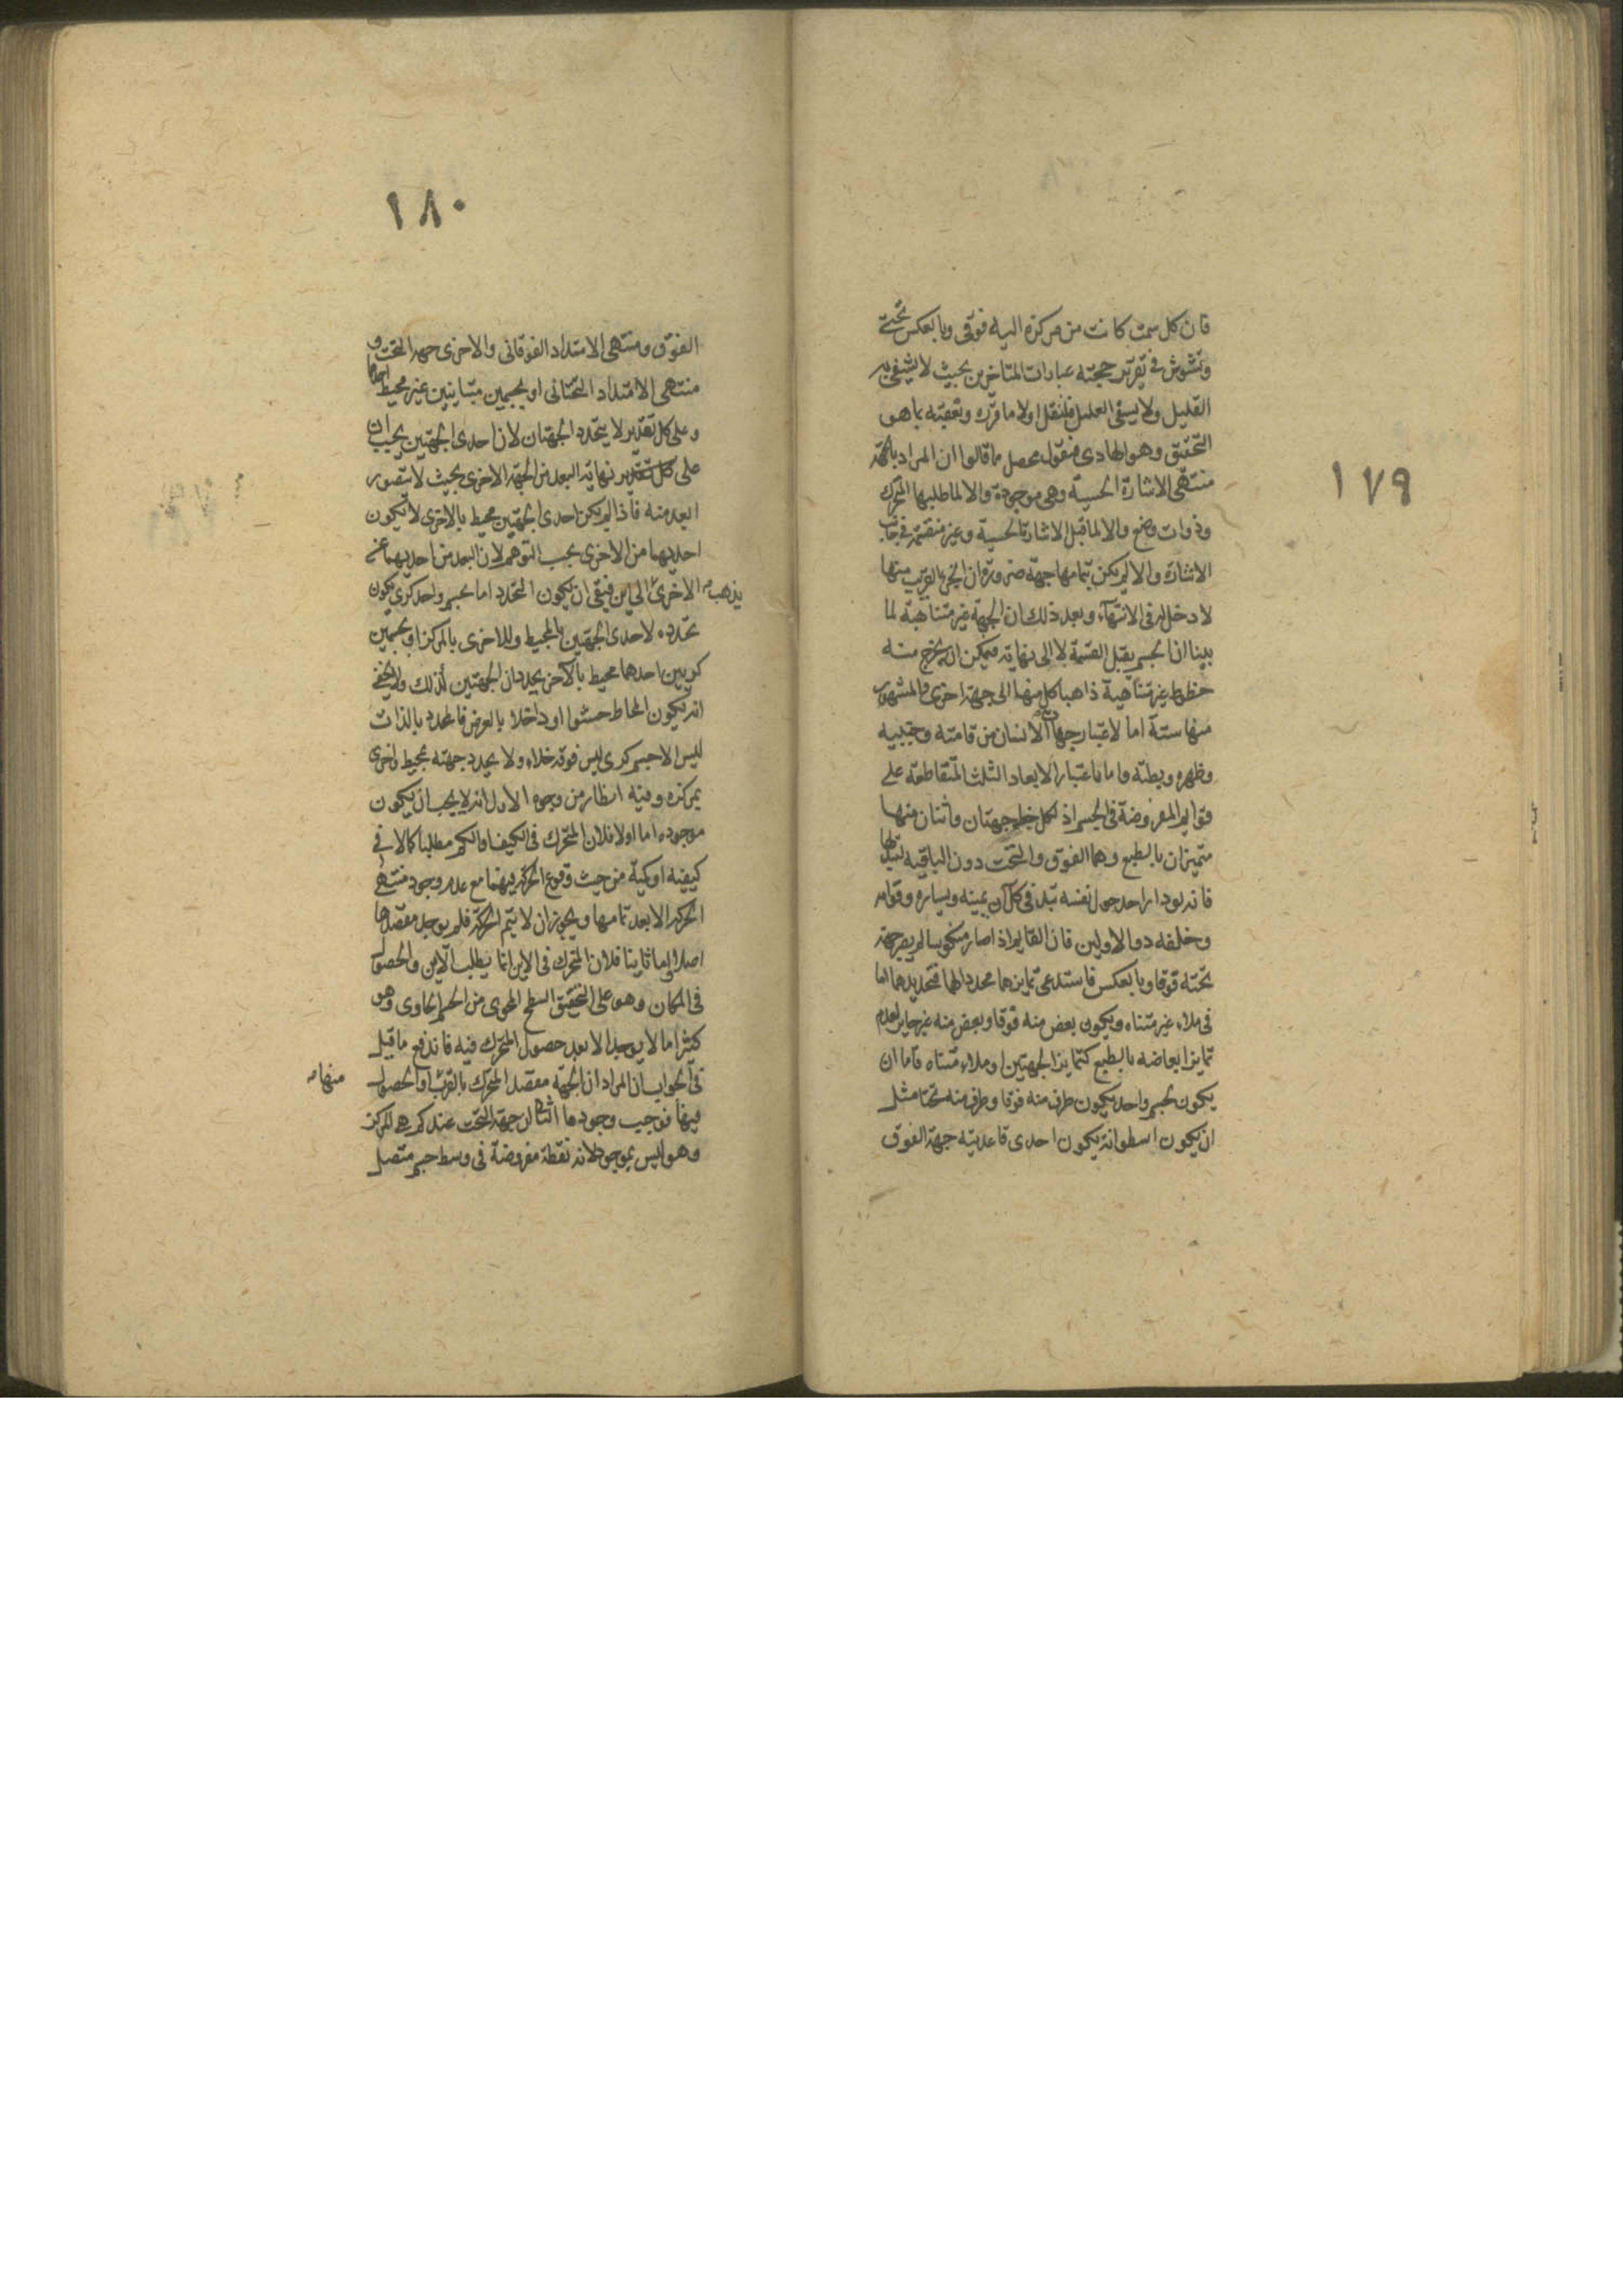 ١٧٩
فان كل سمت كانت من مركزه اليه فوقى وبالعكس تحتى
وتشوش فى تقرير حجته عبارات المتاخرين بحيث لا يشفى به
القليل ولا يسقى العليل فلننقل اولا ما قرره ونعقبه بما هو
التحقيق وهو الهادى فنقول محصل ما قالوا ان المراد بالجهة
منتهى الاشارة الحسية وهى موجودة والا لما طلبها المتحرك
وذوات وضع والا لما قبل الاشارة الحسية وغير منقسمة فى جانب
الاشارة والا لم يكن بتمامها جهة ضرورة ان الجزء القريب منها
لا دخل له فى الانتهاء وبعد ذلك ان الجهة غير متناهية لما
بينا ان الجسم يقبل القسمة لا الى نهاية فيمكن ان يخرج منه
خطوط غير متناهية ذاهبا كل منها الى جهة اخرى والمشهور
منها ستة اما لاعتبار جهات الانسان من قامته وجنبيه
وظهره وبطنه واما فاعتبار الابعاد الثلث المتقاطعة على
قوايم المفروضة فى الجسم اذ لكل خط جهتان واثنان منها
متميزان بالطبع وهما الفوق والتحت دون الباقيه لتبدلها
فانه لو دار احد حول نفسه تبدل فى كل آن يمينه ويساره وقدامه
وخلفه دون الاولين فان القايم اذا صار منكوسا لم يصر جهة
تحته فوقا وبالعكس فاستدعى تمايزهما محددا لهما فتحديدهما اما
فى ملاء غير متناه ويكون بعض منه فوقا وبعض منه غير جايز لعدم
تمايز ابعاضه بالطبع كتمايز الجهتين او ملاء متناه فاما ان
يكون لجسم واحد يكون طرف منه فوقا وطرف منه تحتا مثل
ان يكون اسطوانة يكون احدى قاعدتيه جهة الفوق
١٨٠
الفوق ومنتهى الامتداد الفوقانى والاخرى جهه التحت و
منتهى الامتداد التحتانى او بجسمين متباينين غير محيط احدهما
وعلى كل تقدير لا يتحدد الجهتان لان احدى الجهتين يجب ان
على كل تقدير نهاية البعد من الجهة الاخرى بحيث لا يتصور
ابعد منه فاذا لم يكن احدى الجهتين محيط بالاخرى لا يكون
احديهما من الاخرى بحسب التوهم لان البعد من احديهما غير
يذهب الاخرى الى اين فبقى ان يكون التحدد اما بجسم واحد كرى يكون
تحدده لاحدى الجهتين بالمحيط وللاخرى بالمركز او بجسمين
كريين احدهما محيط بالآخر يحددان الجهتين لذلك ولا يخفى
انه يكون المحاط حشوا او داخلا بالعرض فالمحدد بالذات
ليس الا جسم كرى ليس فوقه خلاء ولا يحدد جهته بمحيط واخرى
بمركزه وفيه انظار من وجوه الاول انه لا يجب ان يكون
موجوده اما اولا فلان المتحرك فى الكيف او الكم مطلبا كمالا فى
كيفية او كمية من حيث وقوع الحركة فيهما مع عدم وجود منتهى
الحركة الا بعد تمامها ويجوز ان لا يتم الحركة فلم يوجد مقصدها
اصلا واما ثانيا فلان المتحرك فى الاين انما يطلب الاين والحصول
فى المكان وهو على التحقيق السطح المحوى من الجسم الحاوى وهو
كثيرا ما لا يوجد الا بعد حصول المتحرك فيه فاندفع ما قيل
فى الجواب ان المراد ان الجهة مقصد المتحرك بالقرب او الحصول منها
فيها فوجب وجودها الثانى ان جهة التحت عندكم هى المركز
وهو ليس بموجود لانه نقطة مفروضة فى وسط جسم متصل